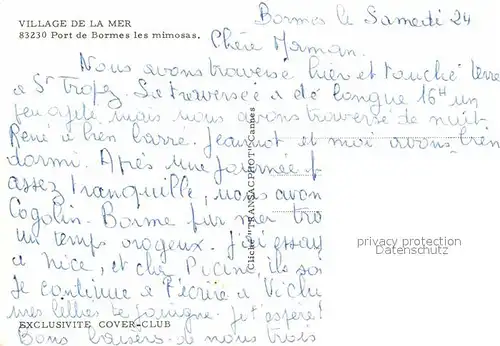 VILLAGE DE LA MER
83230 Port de Bormes les mimosas.
Bormes le Samedi 24
Chère Maman.
Nous avons traversé hier et touché terre
a St Tropez. La traversée a été longue 16H un
peu agité, mais nous avons traversé de nuit
René a bien barré. Jeannot et moi avons bien
dormi. Après une journée
assez tranquille, nous avon
Cogolin - Borme sur mer
un temps orageux. J'ai essay
a Nice, et chez
Je continue a t'écrire a Vichy
mes lettres te
Bons baisers de nous trois
Cliché "TRANSACPHOT" - Carbes
privacy protection
Datenschutz
EXCLUSIVITE COVER-CLUB